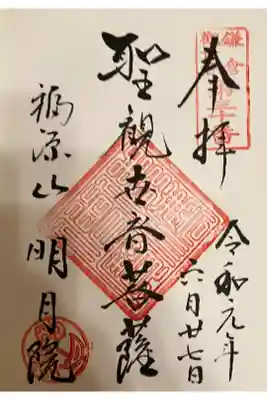 鎌倉
三十番
奉拝
令和元年
六月廿七日
聖観世音菩薩
福源山 明月院